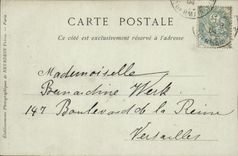 CARTE POSTALE
Ce côté est exclusivement réservé à l'adresse
Mademoiselle
Bernardine Werk
147 Boulevard de la Reine
Versailles
Etablissements Photographiques de NEURDEIN Frères. — Paris